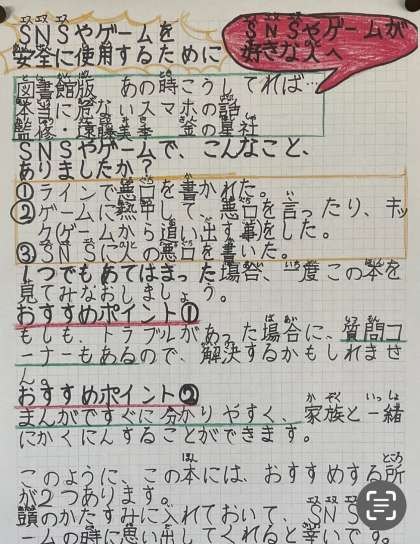 SNSやゲームを
安全に使用するために
SNSやゲームが
好きな人へ
図書館版 あの時こうしてれば…
本当に危ないスマホの話
監修・遠藤美季 金の星社
SNSやゲームで、こんなこと、
ありましたか？
①ラインで悪口を書かれた。
②ゲームに熱中して、悪口を言ったり、キッ
ク(ゲームから追い出す事)をした。
③SNSに人の悪口を書いた。
1つでもあてはまった場合、一度この本を
見てみなおしましょう。
おすすめポイント①
もしも、トラブルがあった場合に、質問コ
ーナーもあるので、解決するかもしれませ
ん。
おすすめポイント②
まんがですぐに分かりやすく、家族と一緒
にかくにんすることができます。
このように、この本には、おすすめする所
が2つあります。
頭のかたすみに入れておいて、SNS
ームの時に思い出してくれると幸いです。